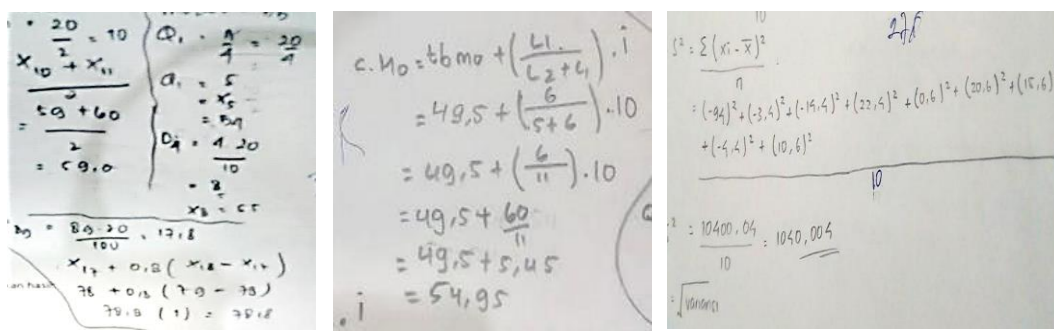 20/2 = 10
X10 + X11
2
= 59 + 60
2
= 59.0
Q1 = n/4 = 20/4
Q1 = 5
= X5
D4 = 4.20
10
= 8
X8 = 55
= 89.20/100 = 17,8
X17 + 0,8 ( X18 - X17 )
78 + 0,8 ( 79 - 78 )
78.8 ( 1 ) = 78.8
C. Mo = tbmo + (L1/L2+L1) . i
= 49,5 + (6/5+6) . 10
= 49,5 + (6/11) . 10
= 49,5 + 60/11
= 49,5 + 5,45
= 54,95
. i
10
275
S² = Σ (xi - x̄)²
n
= (-94)² + (-3,4)² + (-19,4)² + (22,4)² + (0,6)² + (20,6)² + (15,6)
+ (-4,4)² + (10,6)²
10
² = 10400,04/10 = 1040,004
= √variansi